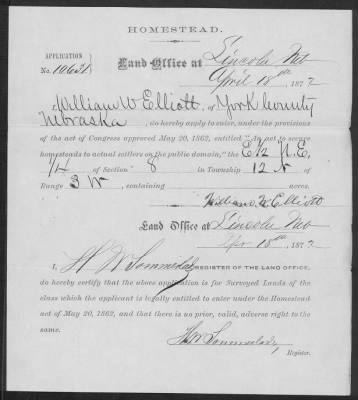 HOMESTEAD.
APPLICATION
No. 10631
Land Office at Lincoln Neb
April 18th, 1872
I, William W Elliott, of York County
Nebraska, do hereby apply to enter, under the provisions
of the act of Congress approved May 20, 1862, entitled "An act to secure
homesteads to actual settlers on the public domain," the E ½ N.E.
¼ of Section 8 in Township 12 N of
Range 3 W, containing acres.
William W. Elliott
Land Office at Lincoln Neb
Apr 18th 1872
I, H W Sommerlad, REGISTER OF THE LAND OFFICE,
do hereby certify that the above application is for Surveyed Lands of the
class which the applicant is legally entitled to enter under the Homestead
act of May 20, 1862, and that there is no prior, valid, adverse right to the
same.
H W Sommerlad,
Register.